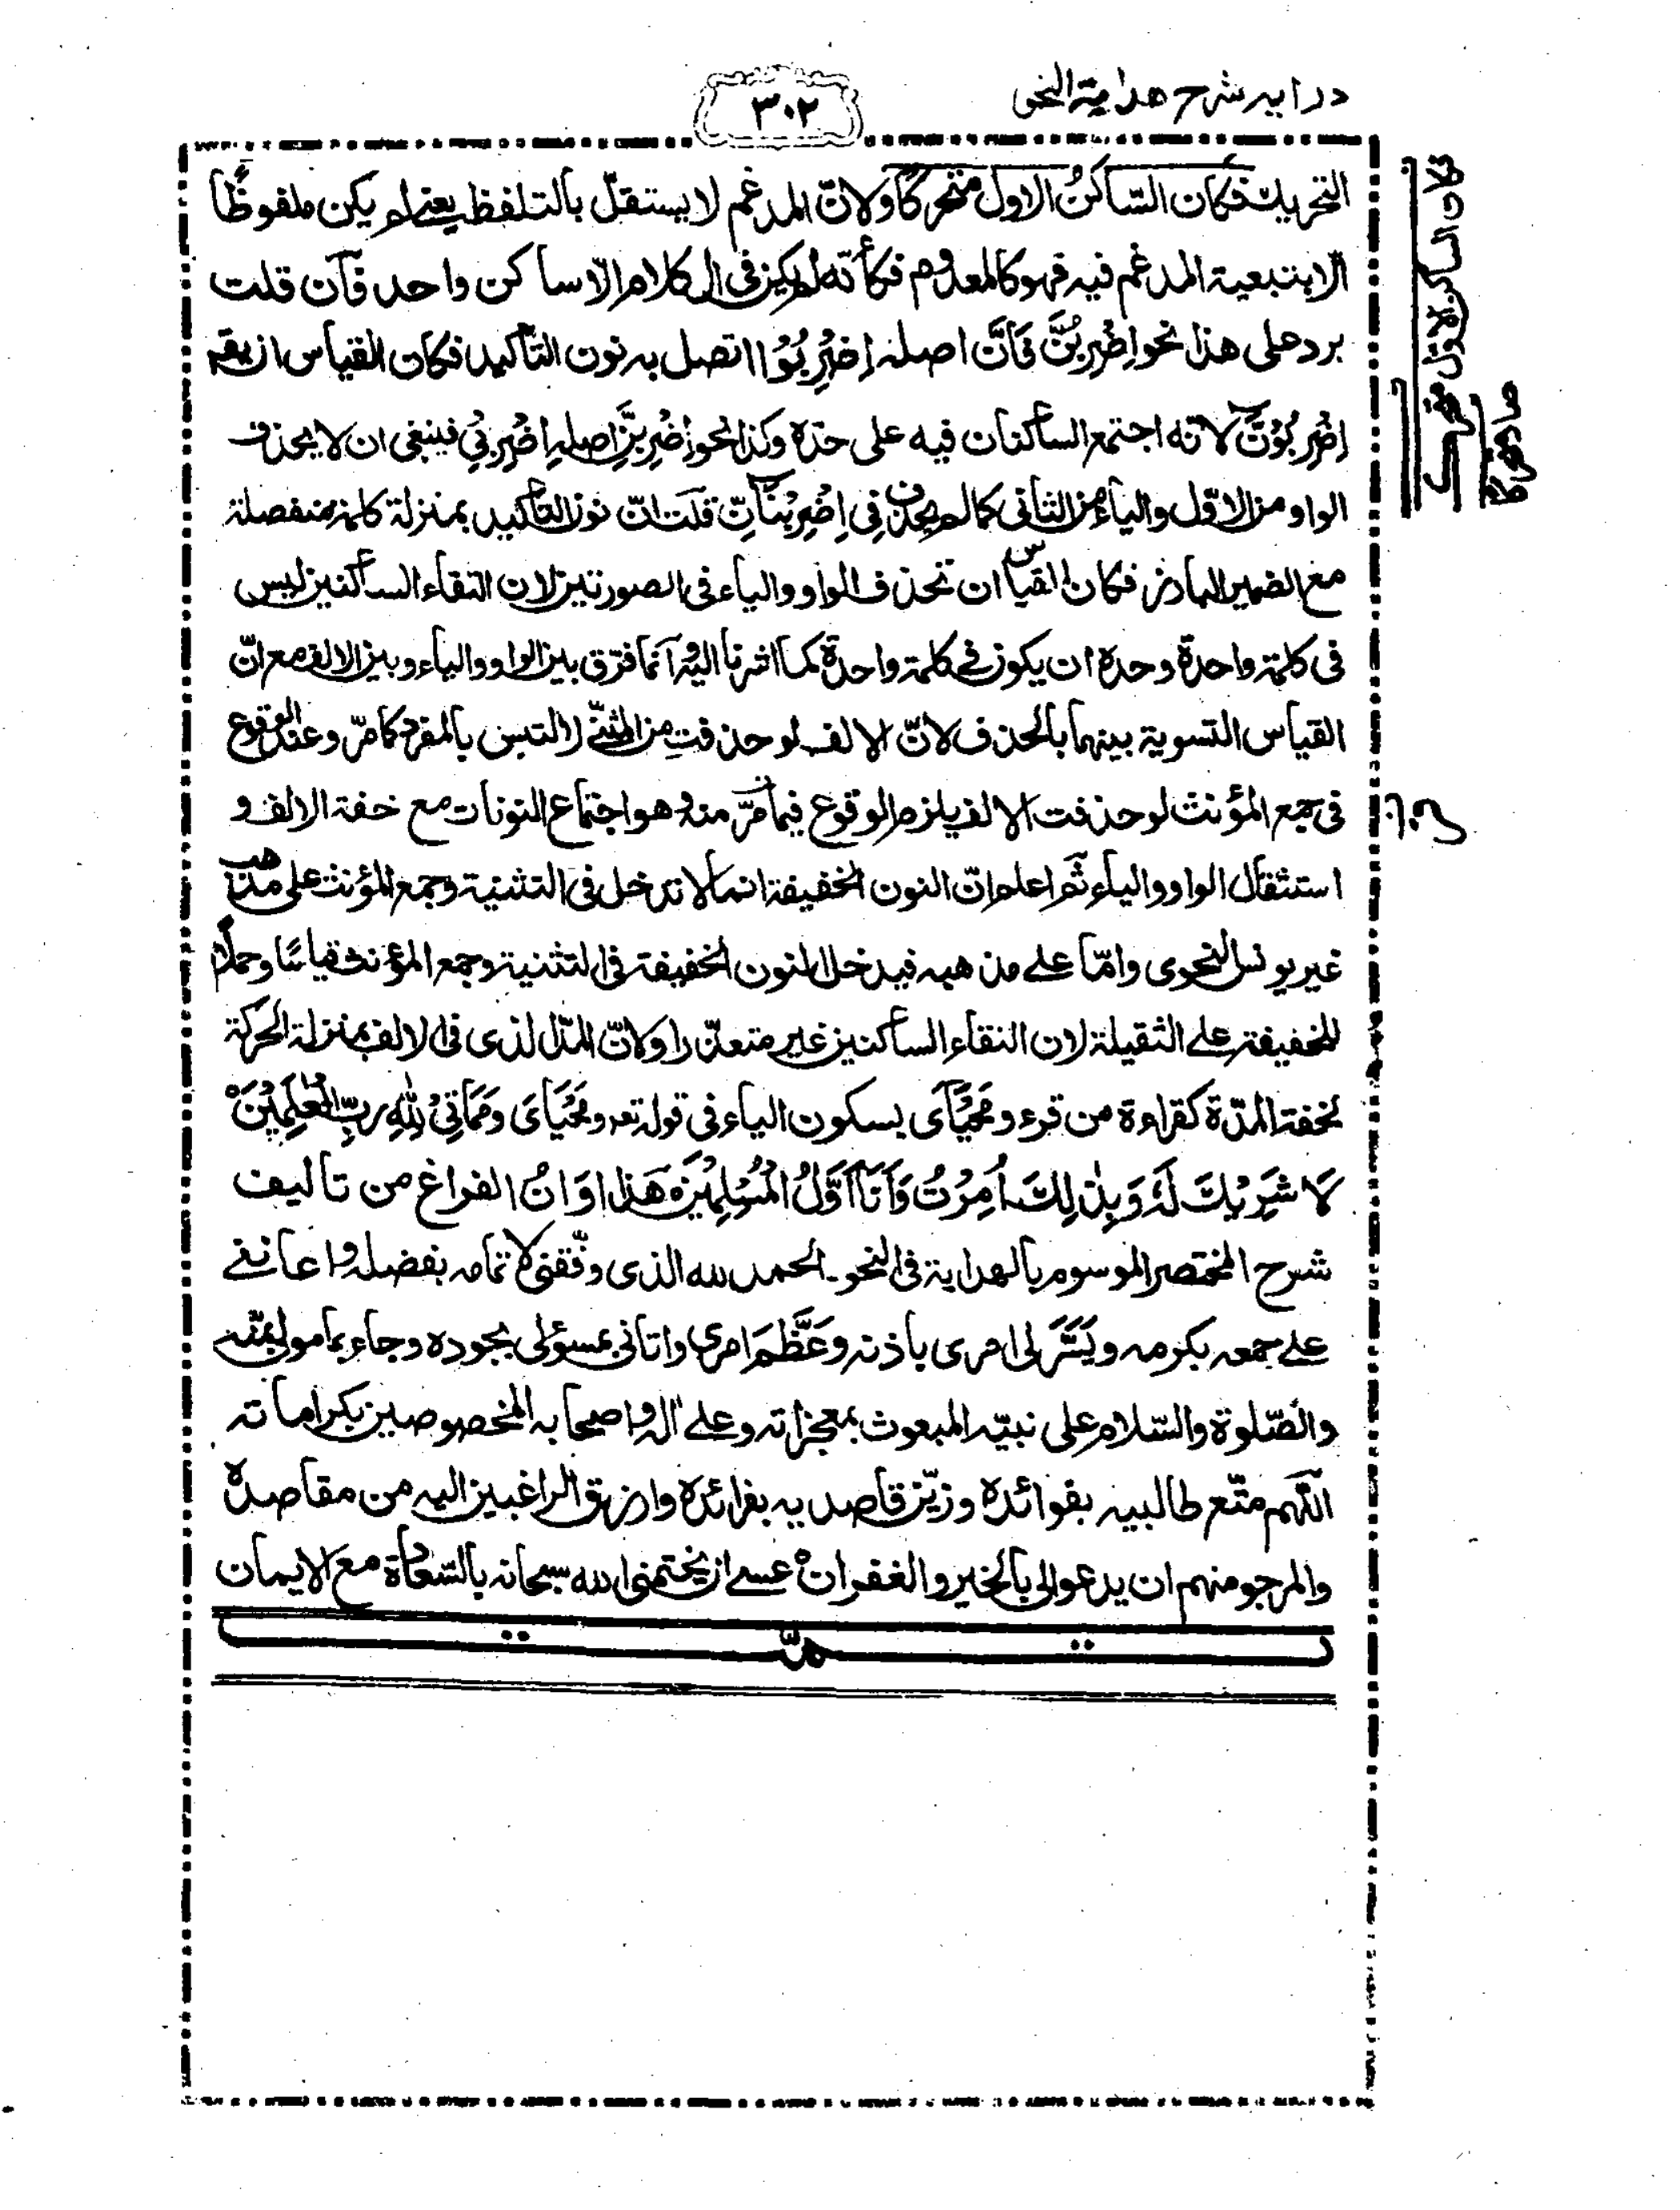 درايه شرح هداية النحو
٣٠٢
التحريك فكان السّاكنُ الاول متحركًا ولانّ المدغم لا يستقلّ بالتلفظ يعنى لم يكن ملفوظًا
الّا بتبعية المدغم فيه فهو كالمعدوم فكأنّه لم يكن فى الكلام الّا ساكن واحد فآن قلت
يرد على هذا نحو اِضْرِبُنَّ فَاَنَّ اصله اِضْرِبُوْا اتصل به نون التأكيد فكان القياس ان يقم
اِضْرِبُوْنَّ لانّه اجتمع الساكنان فيه على حدّه وكذا نحو اِضْرِبِنَّ اصله اِضْرِبِيْ فينبغى ان لا يحذف
الواو من الاوّل والياء من الثانى كما لم يحذف فى اِضْرِبْنَانِّ قلت انّ نون التأكيد بمنزلة كلمة منفصلة
مع الضمير البارز فكان القياس ان تحذف الواو والياء فى الصورتين لان التقاء الساكنين ليس
فى كلمة واحدة وحده ان يكون فى كلمة واحدة كما اشرنا اليه وآنما فرّق بين الواو والياء وبين الالف مع انّ
القياس التسوية بينهما بالحذف لانّ الالف لو حذفت من المثنّى لالتبس بالمفرد كما مرّ وعند الوقوع
فى جمع المؤنث لو حذفت الالف يلزم الوقوع فيما فرّ منه وهو اجتماع النونات مع خفة الالف و
استثقال الواو والياء ثم اعلم انّ النون الخفيفة انما لا تدخل فى التثنية وجمع المؤنث على مذهب
غير يونس النحوى وامّا على مذهبه فيدخل النون الخفيفة فى التثنية وجمع المؤنث قياسًا وحملًا
للخفيفة على الثقيلة لان التقاء الساكنين غير متعذّر ولانّ المدّ الذى فى الالف بمنزلة الحركة
لخفة المدّة كقراءة من قرء ومَحْيَاىْ بسكون الياء فى قوله تعـ ومَحْيَاىَ وَمَمَاتِىْ لِلّٰهِ رَبِّ الْعٰلَمِيْنَ ۝
لَا شَرِيْكَ لَهٗ وَبِذٰلِكَ اُمِرْتُ وَاَنَا اَوَّلُ الْمُسْلِمِيْنَ ۝ هَذا اوَانُ الفراغ من تأليف
شرح المختصر الموسوم بالهداية فى النحو۔ الحمد لله الذى وفّقنى لاتمامه بفضله واعاننى
على جمعه بكرمه ويَسَّرَ لى امرى باذنه وعَظَّمَ امرى واتانى بمسؤلى بجوده وجاء بمامولى بمنّه
والصّلوة والسّلام على نبيّه المبعوث بمعجزاته وعلى اٰله واصحابه المخصوصين بكراماته
اللّهم متّع طالبيه بفوائده وزيّن قاصديه بفرائده وارزق الراغبين اليه من مقاصده
والمرجو منهم ان يدعوا لى بالخير والغفران عسى ان يختمنى الله سبحانه بالسّعادة مع الايمان
تمّت